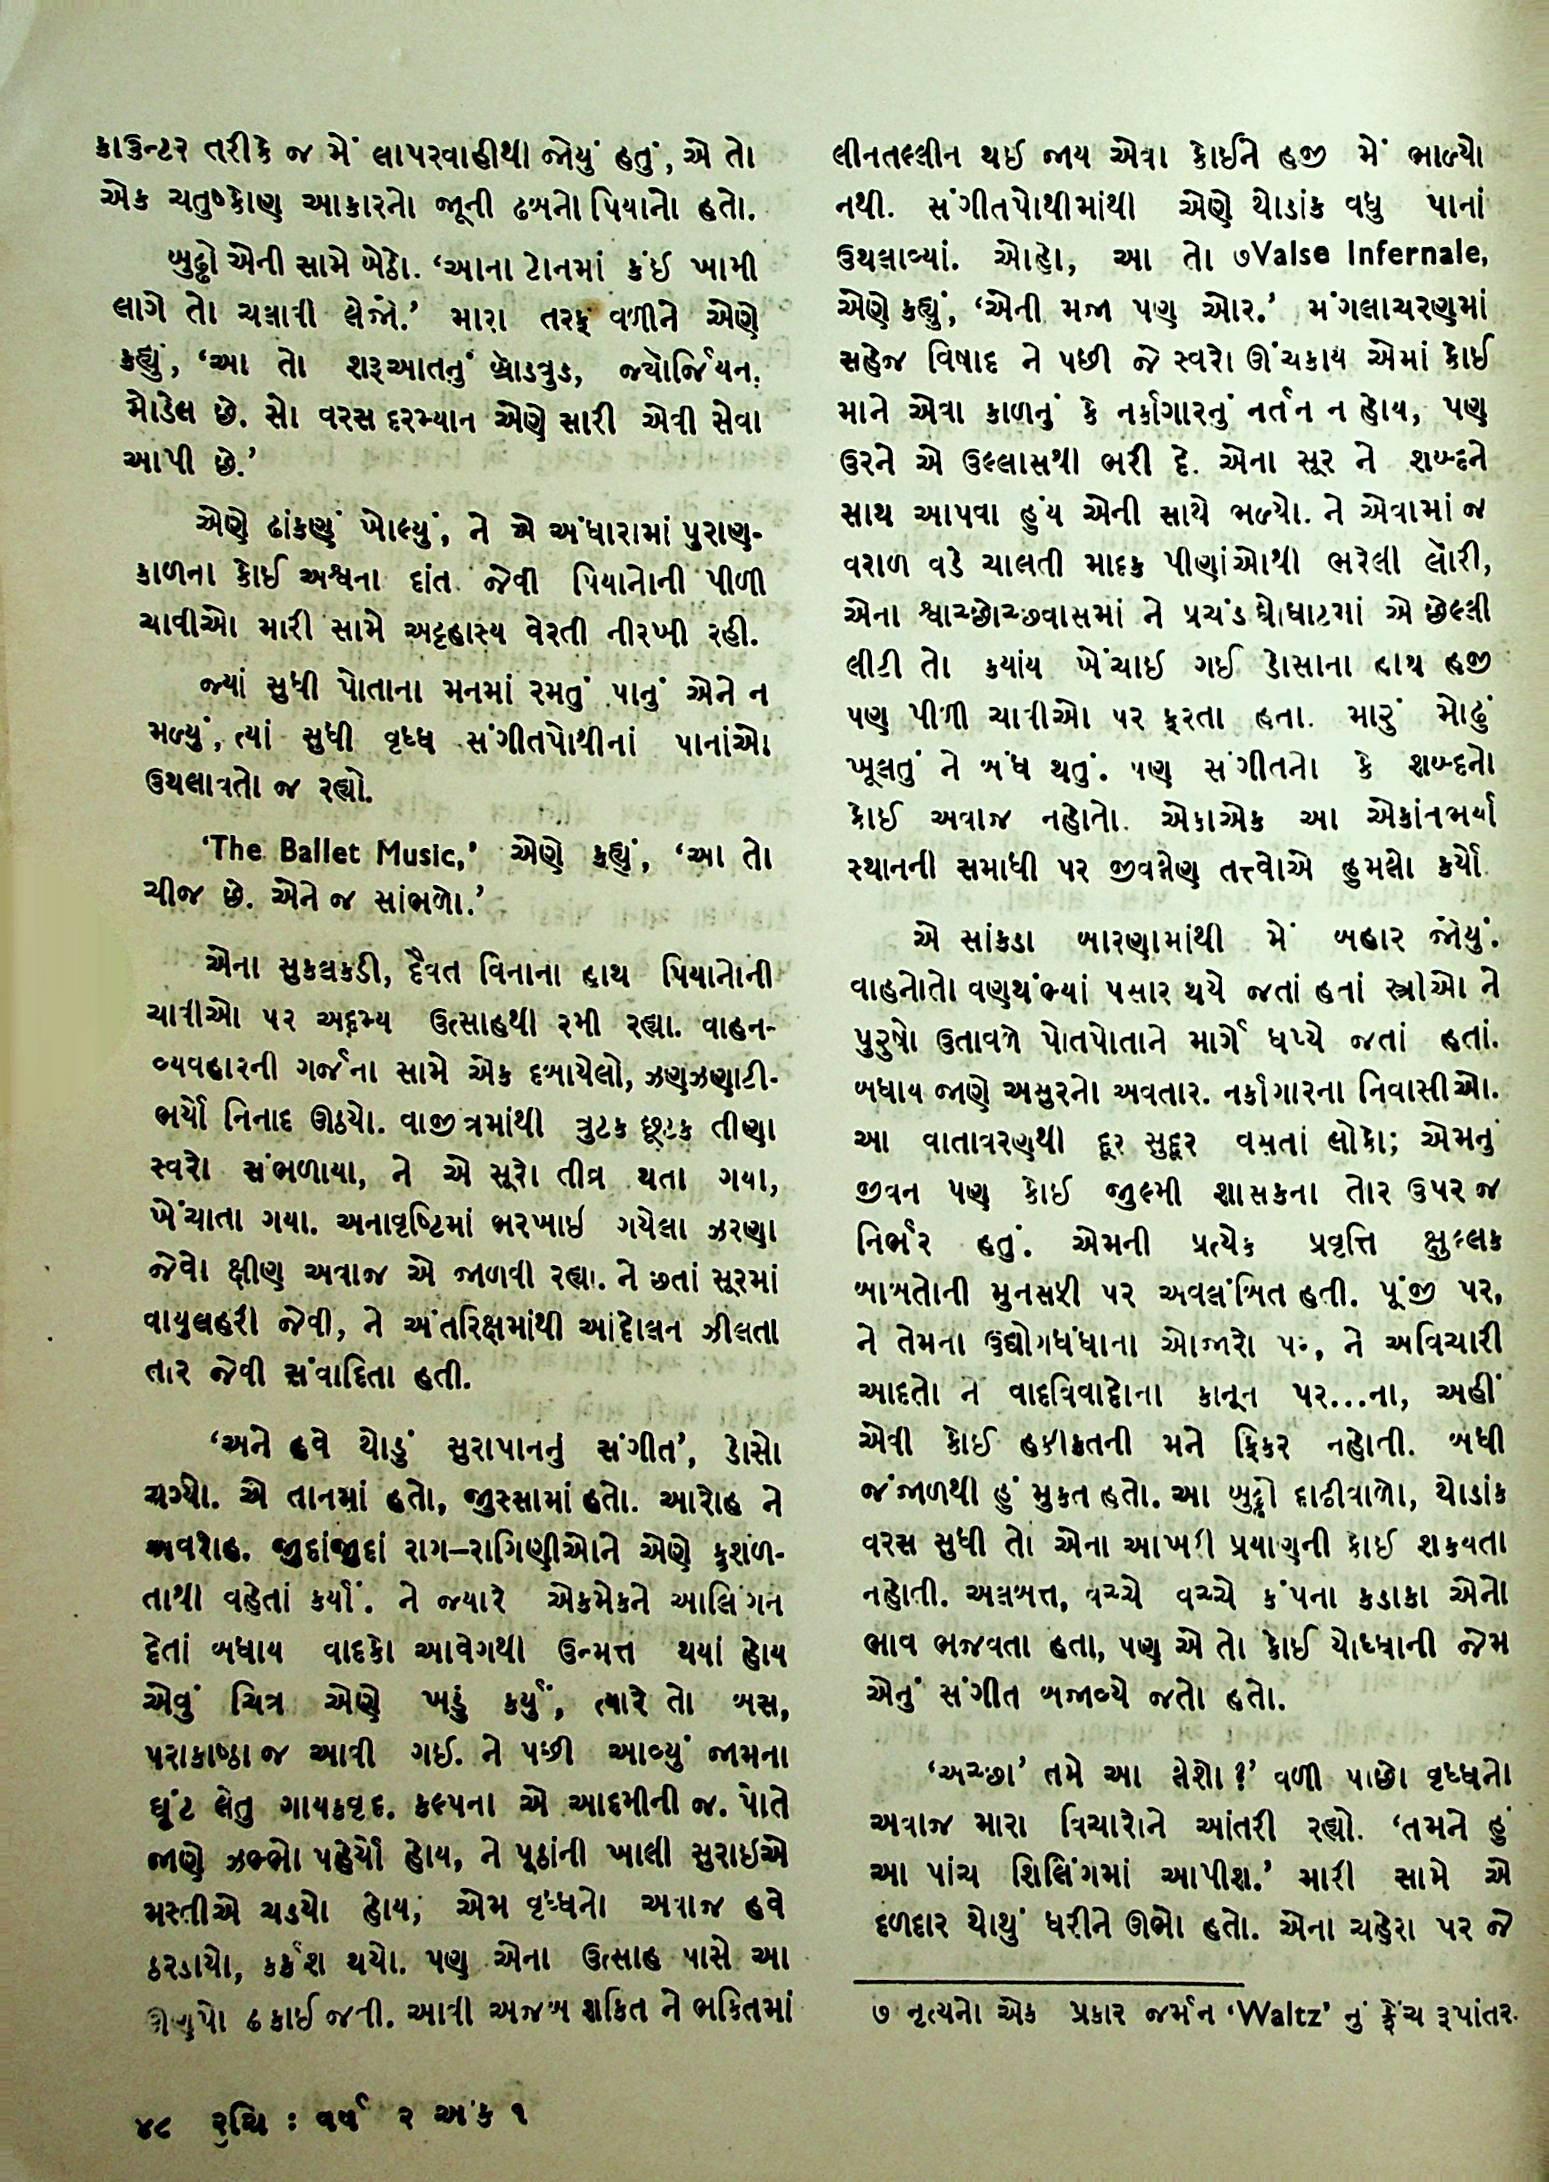 કાઉન્ટર તરીકે જ મેં લાપરવાહીથી જોયું હતું, એ તો
એક ચતુષ્કોણ આકારનો જૂની ઢબનો પિયાનો હતો.
બુઢ્ઢો એની સામે બેઠો. ‘આના ટોનમાં કંઈ ખામી
લાગે તો ચલાવી લેજો.’ મારા તરફ વળીને એણે
કહ્યું, ‘આ તો શરૂઆતનું બ્રોડવુડ, જ્યૉર્જિયન
મોડેલ છે. સો વરસ દરમ્યાન એણે સારી એવી સેવા
આપી છે.’
એણે ઢાંકણું ખોલ્યું, ને એ અંધારામાં પુરાણ-
કાળના કોઈ અશ્વના દાંત જેવી પિયાનોની પીળી
ચાવીઓ મારી સામે અટ્ટહાસ્ય વેરતી નીરખી રહી.
જ્યાં સુધી પોતાના મનમાં રમતું પાનું એને ન
મળ્યું, ત્યાં સુધી વૃધ્ધ સંગીતપોથીનાં પાનાંઓ
ઉથલાવતો જ રહ્યો.
‘The Ballet Music,’ એણે કહ્યું, ‘આ તો
ચીજ છે. એને જ સાંભળો.’
એના સુકલકડી, દૈવત વિનાના હાથ પિયાનોની
ચાવીઓ પર અદ્દમ્ય ઉત્સાહથી રમી રહ્યા. વાહન-
વ્યવહારની ગર્જના સામે એક દબાયેલો, ઝણઝણાટી-
ભર્યો નિનાદ ઊઠયો. વાજીંત્રમાંથી ત્રુટક છૂટક તીણા
સ્વરો સંભળાયા, ને એ સૂરો તીવ્ર થતા ગયા,
ખેંચાતા ગયા. અનાવૃષ્ટિમાં ભરખાઈ ગયેલા ઝરણા
જેવો ક્ષીણ અવાજ એ જાળવી રહ્યા. ને છતાં સૂરમાં
વાયુલહરી જેવી, ને અંતરિક્ષમાંથી આંદોલન ઝીલતા
તાર જેવી સંવાદિતા હતી.
‘અને હવે થોડું સુરાપાનનું સંગીત’, ડોસો
ચગ્યો. એ તાનમાં હતો, જુસ્સામાં હતો. આરોહ ને
અવરોહ. જુદાંજુદાં રાગ–રાગિણીઓને એણે કુશળ-
તાથી વહેતાં કર્યાં. ને જ્યારે એકમેકને આલિંગન
દેતાં બધાય વાદકો આવેગથી ઉન્મત્ત થયાં હોય
એવું ચિત્ર એણે ખડું કર્યું, ત્યારે તો બસ,
પરાકાષ્ઠા જ આવી ગઈ. ને પછી આવ્યું જામના
ઘૂંટ લેતુ ગાયકવૃદ. કલ્પના એ આદમીની જ. પોતે
જાણે ઝભ્ભો પહેર્યો હોય, ને પૂઠાંની ખાલી સુરાઈએ
મસ્તીએ ચડયો હોય; એમ વૃધ્ધનો અવાજ હવે
ઠરડાયો, કર્કશ થયો. પણ એના ઉત્સાહ પાસે આ
ઊણપો ઢકાઈ જતી. આવી અજબ શકિત ને ભકિતમાં
૪૮ રુચિ : વર્ષ ૨ અંક ૧
લીનતલ્લીન થઈ જાય એવા કોઈને હજી મેં ભાળ્યો
નથી. સંગીતપોથીમાંથી એણે થોડાંક વધુ પાનાં
ઉથલાવ્યાં. ઓહો, આ તો ૭Valse Infernale,
એણે કહ્યું, ‘એની મજા પણ ઓર.’ મંગલાચરણમાં
સહેજ વિષાદ ને પછી જે સ્વરો ઊંચકાય એમાં કોઈ
માને એવા કાળનું કે નર્કાગારનું નર્તન ન હોય, પણ
ઉરને એ ઉલ્લાસથી ભરી દે. એના સૂર ને શબ્દને
સાથ આપવા હુંય એની સાથે ભળ્યો. ને એવામાં જ
વરાળ વડે ચાલતી માદક પીણાંઓથી ભરેલી લૉરી,
એના શ્વાચ્છોચ્છ્વાસમાં ને પ્રચંડ ઘોઘાટમાં એ છેલ્લી
લીટી તો કયાંય ખેંચાઈ ગઈ ડોસાના હાથ હજી
પણ પીળી ચાવીઓ પર ફરતા હતા. મારું મોઢું
ખૂલતું ને બંધ થતું. પણ સંગીતનો કે શબ્દનો
કોઈ અવાજ નહોતો. એકાએક આ એકાંતભર્યા
સ્થાનની સમાધી પર જીવલેણ તત્ત્વોએ હુમલો કર્યો
એ સાંકડા બારણામાંથી મેં બહાર જોયું.
વાહનોતો વણથંભ્યાં પસાર થયે જતાં હતાં સ્ત્રીઓ ને
પુરુષો ઉતાવળે પોતપોતાને માર્ગે ધપ્યે જતાં હતાં.
બધાય જાણે અસુરનો અવતાર. નર્કાગારના નિવાસીઓ.
આ વાતાવરણથી દૂર સુદૂર વસતાં લોકો; એમનું
જીવન પણ કોઈ જુલ્મી શાસકના તોર ઉપર જ
નિર્ભર હતું. એમની પ્રત્યેક પ્રવૃત્તિ ક્ષુલ્લક
બાબતોની મુનસફી પર અવલંબિત હતી. પૂંજી પર,
ને તેમના ઉદ્યોગધંધાના ઓજારો પર, ને અવિચારી
આદતો ને વાદવિવાદોના કાનૂન પર...ના, અહીં
એવી કોઈ હકીકતની મને ફિકર નહોતી. બધી
જંજાળથી હું મુકત હતો. આ બુઢ્ઢો દાઢીવાળો, થોડાંક
વરસ સુધી તો એના આખરી પ્રયાણની કોઈ શકયતા
નહોતી. અલબત્ત, વચ્ચે વચ્ચે કંપના કડાકા એનો
ભાવ ભજવતા હતા, પણ એ તો કોઈ યોધ્ધાની જેમ
એનું સંગીત બજાવ્યે જતો હતો.
‘અચ્છા’ તમે આ લેશો ?’ વળી પાછો વૃધ્ધનો
અવાજ મારા વિચારોને આંતરી રહ્યો. ‘તમને હું
આ પાંચ શિલિંગમાં આપીશ.’ મારી સામે એ
દળદાર થોથું ધરીને ઊભો હતો. એના ચહેરા પર જે
૭ નૃત્યનો એક પ્રકાર જર્મન ‘Waltz’ નું ફ્રેંચ રૂપાંતર.